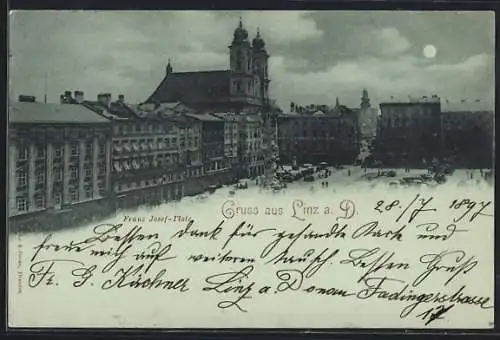 Franz Josef-Platz
Gruss aus Linz a. D.
28./7 1897
Besten Dank für gehabte Karte und
freue mich auf weiteren Tausch. Besten Gruß
Fr. G. Kirchner Linz a. Donau Fadingerstrasse
17